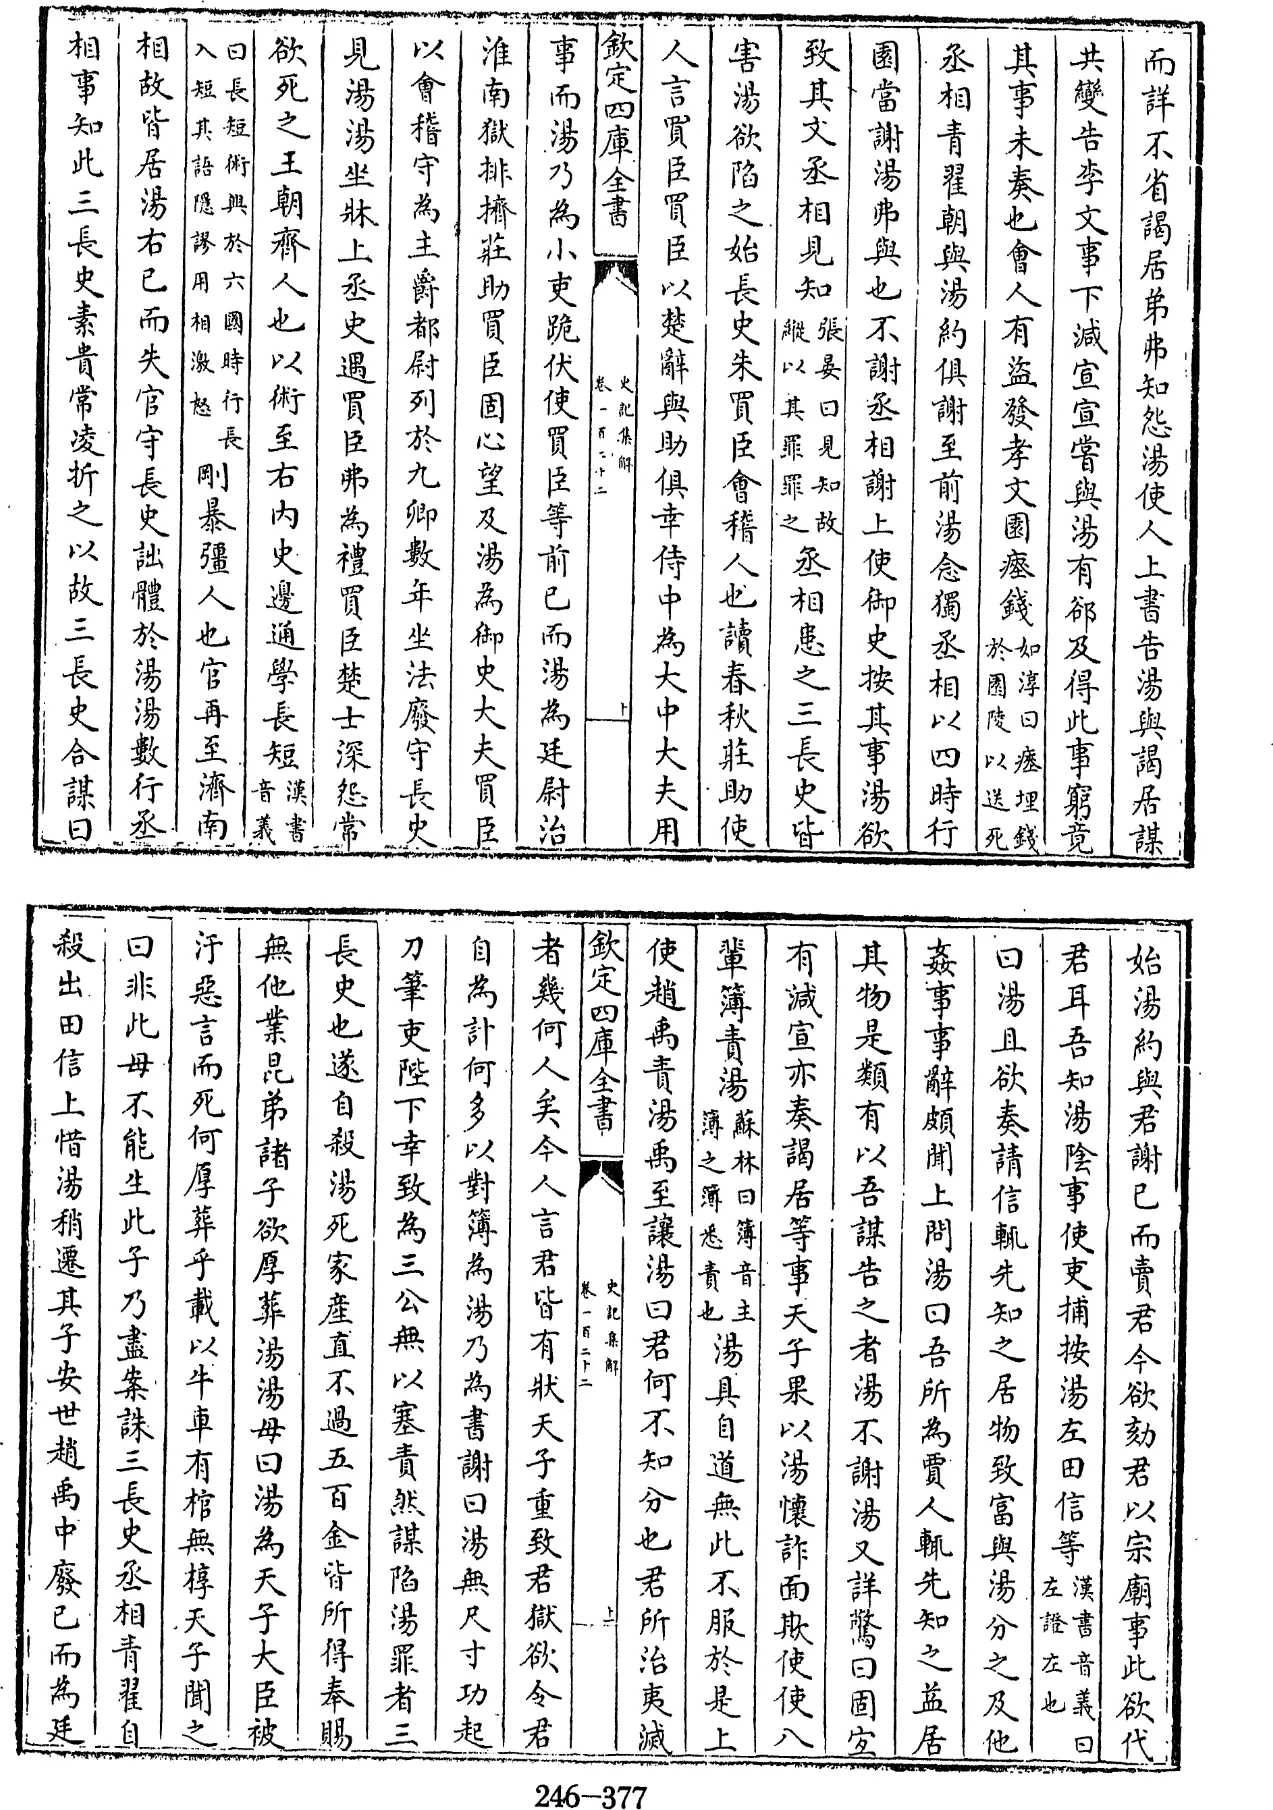 而詳不省謁居弟弗知怨湯使人上書告湯與謁居謀
共變告李文事下減宣宣嘗與湯有郤及得此事窮竟
其事未奏也會人有盜發孝文園瘞錢如淳曰瘞埋錢於園陵以送死
丞相青翟朝與湯約俱謝至前湯念獨丞相以四時行
園當謝湯弗與也不謝丞相謝上使御史按其事湯欲
致其文丞相見知張晏曰見知故縱以其罪罪之丞相患之三長史皆
害湯欲陷之始長史朱買臣會稽人也讀春秋莊助使
人言買臣買臣以楚辭與助俱幸侍中為大中大夫用
欽定四庫全書
史記集解
卷一百二十二
事而湯乃為小吏跪伏使買臣等前已而湯為廷尉治
淮南獄排擠莊助買臣固心望及湯為御史大夫買臣
以會稽守為主爵都尉列於九卿數年坐法廢守長史
見湯湯坐牀上丞史遇買臣弗為禮買臣楚士深怨常
欲死之王朝齊人也以術至右內史邊通學長短漢書音義
曰長短術興於六國時行長入短其語隱謬用相激怒剛暴彊人也官再至濟南
相故皆居湯右已而失官守長史詘體於湯湯數行丞
相事知此三長史素貴常凌折之以故三長史合謀曰
始湯約與君謝已而賣君今欲劾君以宗廟事此欲代
君耳吾知湯陰事使吏捕按湯左田信等漢書音義曰左證左也
曰湯且欲奏請信輒先知之居物致富與湯分之及他
姦事事辭頗聞上問湯曰吾所為賈人輒先知之益居
其物是類有以吾謀告之者湯不謝湯又詳驚曰固宜
有減宣亦奏謁居等事天子果以湯懷詐面欺使使八
輩簿責湯蘇林曰簿音主簿之簿悉責也湯具自道無此不服於是上
使趙禹責湯禹至讓湯曰君何不知分也君所治夷滅
欽定四庫全書
史記集解
卷一百二十二
者幾何人矣今人言君皆有狀天子重致君獄欲令君
自為計何多以對簿為湯乃為書謝曰湯無尺寸功起
刀筆吏陛下幸致為三公無以塞責然謀陷湯罪者三
長史也遂自殺湯死家產直不過五百金皆所得奉賜
無他業昆弟諸子欲厚葬湯湯母曰湯為天子大臣被
汙惡言而死何厚葬乎載以牛車有棺無椁天子聞之
曰非此母不能生此子乃盡案誅三長史丞相青翟自
殺出田信上惜湯稍遷其子安世趙禹中廢已而為廷
246-377